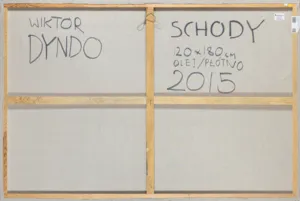 WIKTOR
DYNDO
SCHODY
120x180cm
OLEJ/PŁÓTNO
2015